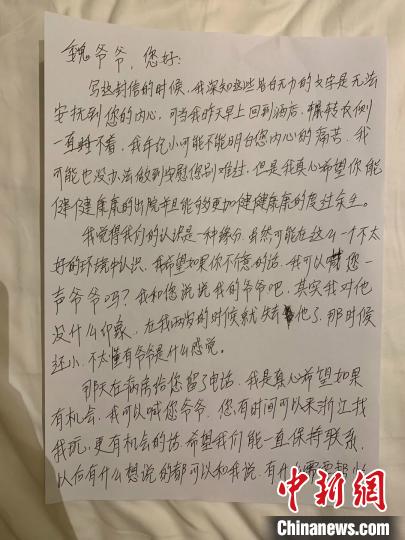 魏爷爷，您好：
写这封信的时候，我深知这些苍白无力的文字是无法
安抚到您的内心，可当我昨天早上回到酒店，辗转反侧
一直睡不着，我年纪小可能不能明白您内心的痛苦，我
可能也没办法做到安慰您别难过，但是我真心希望你能
健健康康的出院并且能够更加健健康康的度过余生。
我觉得我们的认识是一种缘分，虽然可能在这么一个不太
好的环境中认识，我希望如果你不介意的话，我可以喊您一
声爷爷吗？我和您说说我的爷爷吧，其实我对他
没什么印象，在我两岁的时候就失去他了，那时候
还小，不太懂有爷爷是什么感觉。
那天在病房给您留了电话，我是真心希望如果
有机会，我可以喊你爷爷，您有时间可以来浙江找
我玩，更有机会的话，希望我们能一直保持联系，
以后有什么想说的都可以和我说，有什么需要
中新网
Chinanews.com